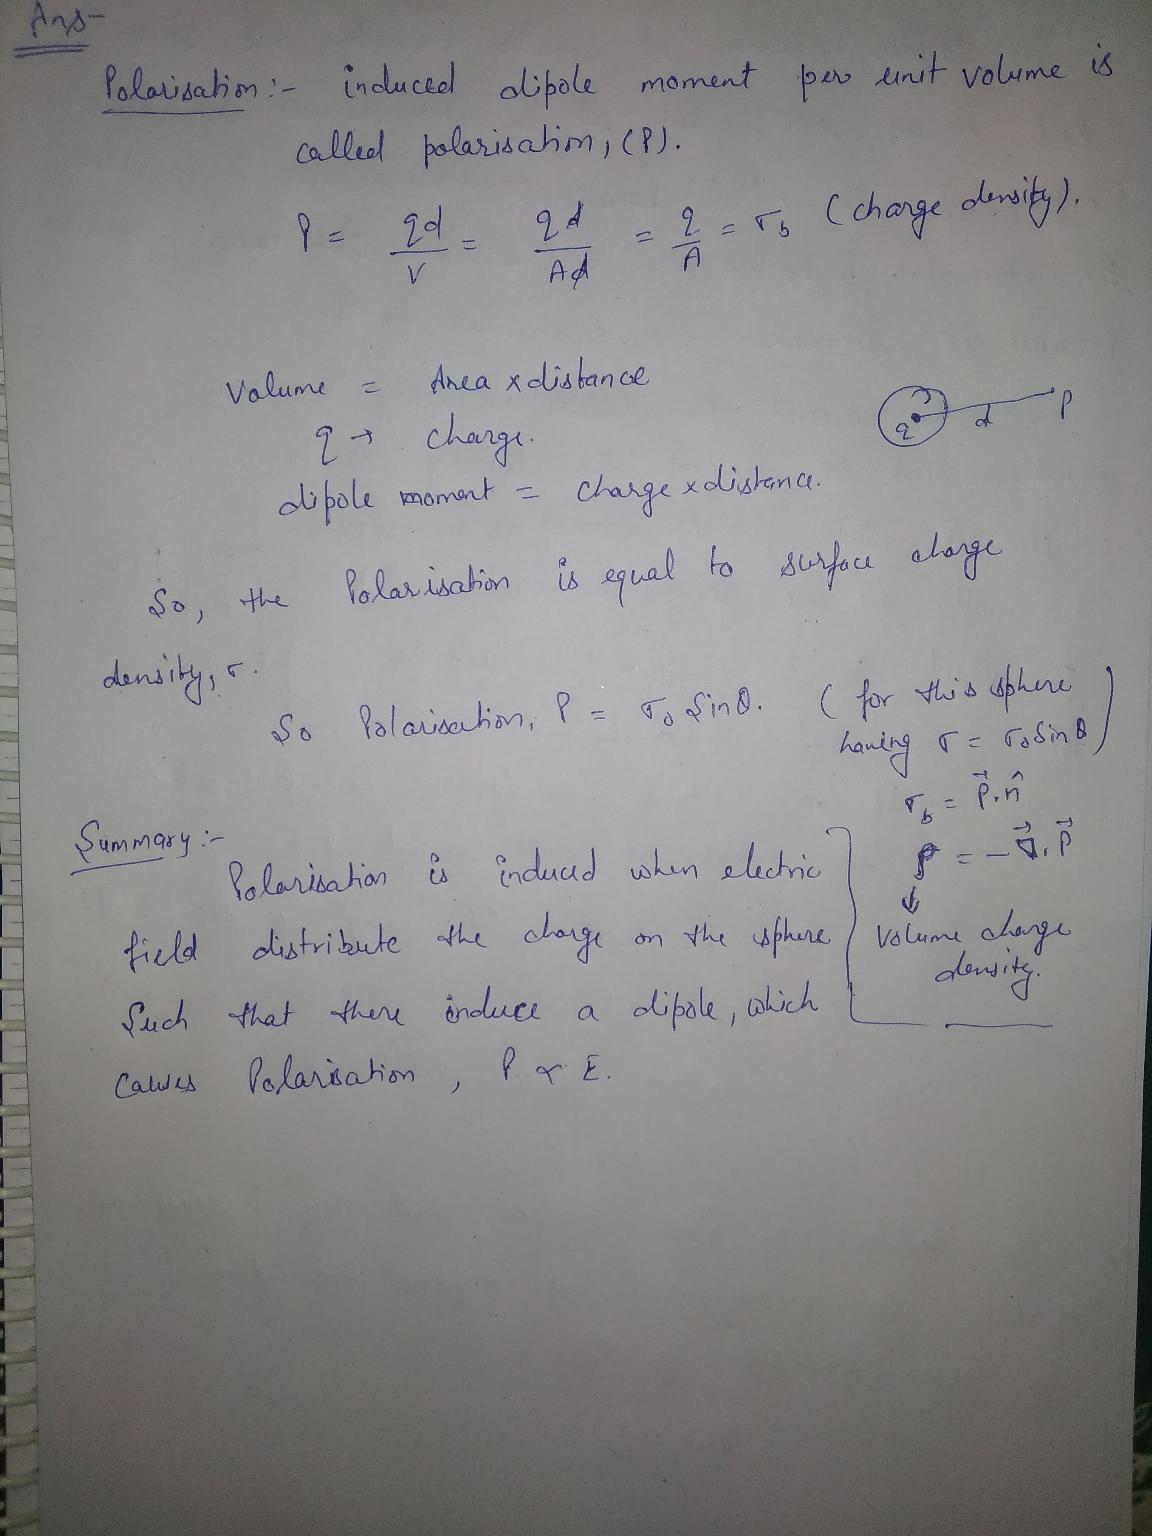 Ans-
Polarisation :- induced dipole moment per unit volume is
called polarisation, (P).
P = qd/V = qd/Ad = q/A = σb (charge density).
Volume = Area x distance
q → charge.
q d P
dipole moment = charge x distance.
So, the Polarisation is equal to surface charge
density, σ.
So Polarisation, P = σ0 Sinθ. (for this sphere
having σ = σ0 Sinθ)
σb = P⃗.n̂
Summary :-
ρ = -∇⃗.P⃗
Polarisation is induced when electric
↓
field distribute the charge on the sphere
Volume charge
density.
Such that there induce a dipole, which
causes Polarisation, P ∝ E.